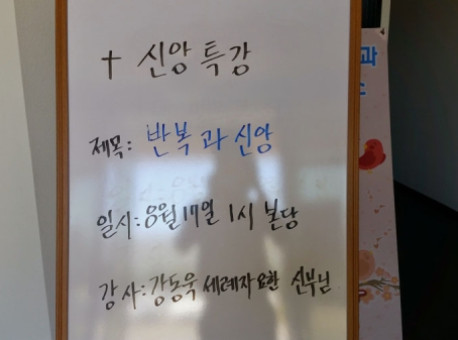 † 신앙 특강
제목: 반복과 신앙
일시: 8월 17일 1시 본당
강사: 강동욱 세례자요한 신부님
과